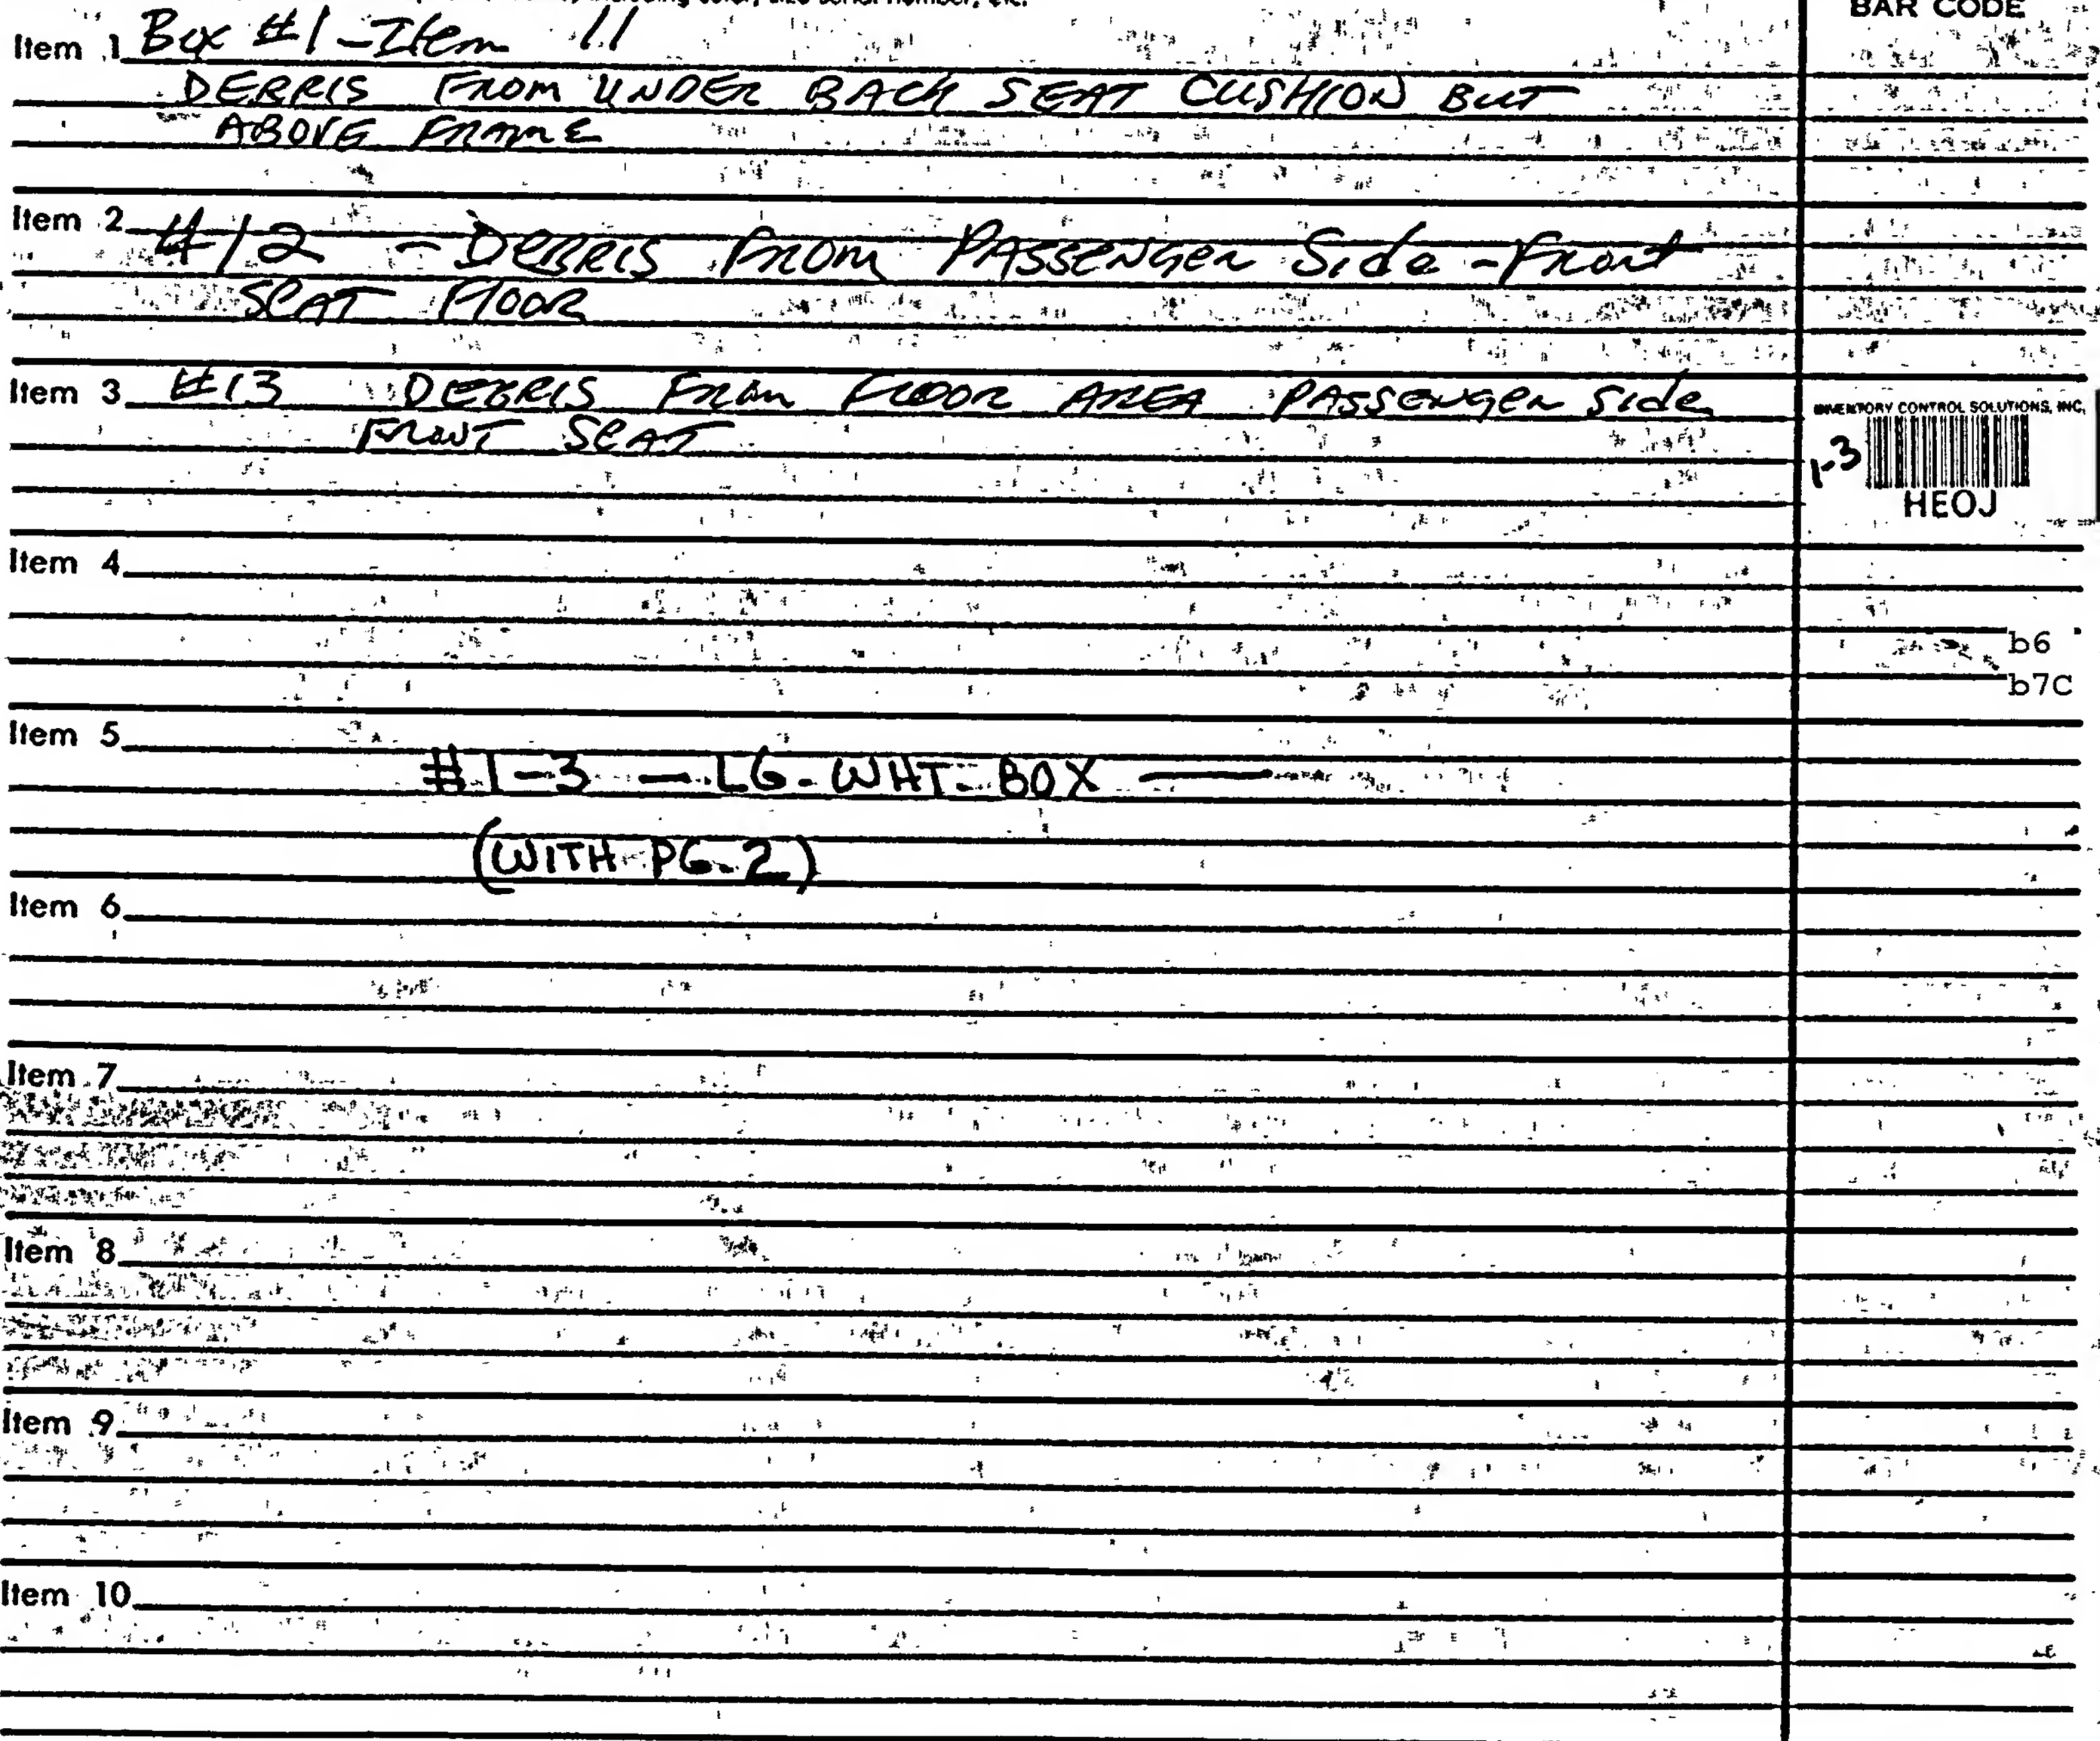 including color, size serial number, etc.
BAR CODE
Item 1 Box #1 - Item 11
DEBRIS FROM UNDER BACK SEAT CUSHION BUT
ABOVE FRAME
Item 2
#12 - DEBRIS FROM PASSENGER Side - Front
SEAT FLOOR
Item 3 #13 DEBRIS FROM FLOOR AREA PASSENGER Side
FRONT SEAT
INVENTORY CONTROL SOLUTIONS, INC.
1-3
HEOJ
Item 4
b6
b7C
Item 5
#1-3 — LG. WHT. BOX —
(WITH PG. 2)
Item 6
Item 7
Item 8
Item 9
Item 10